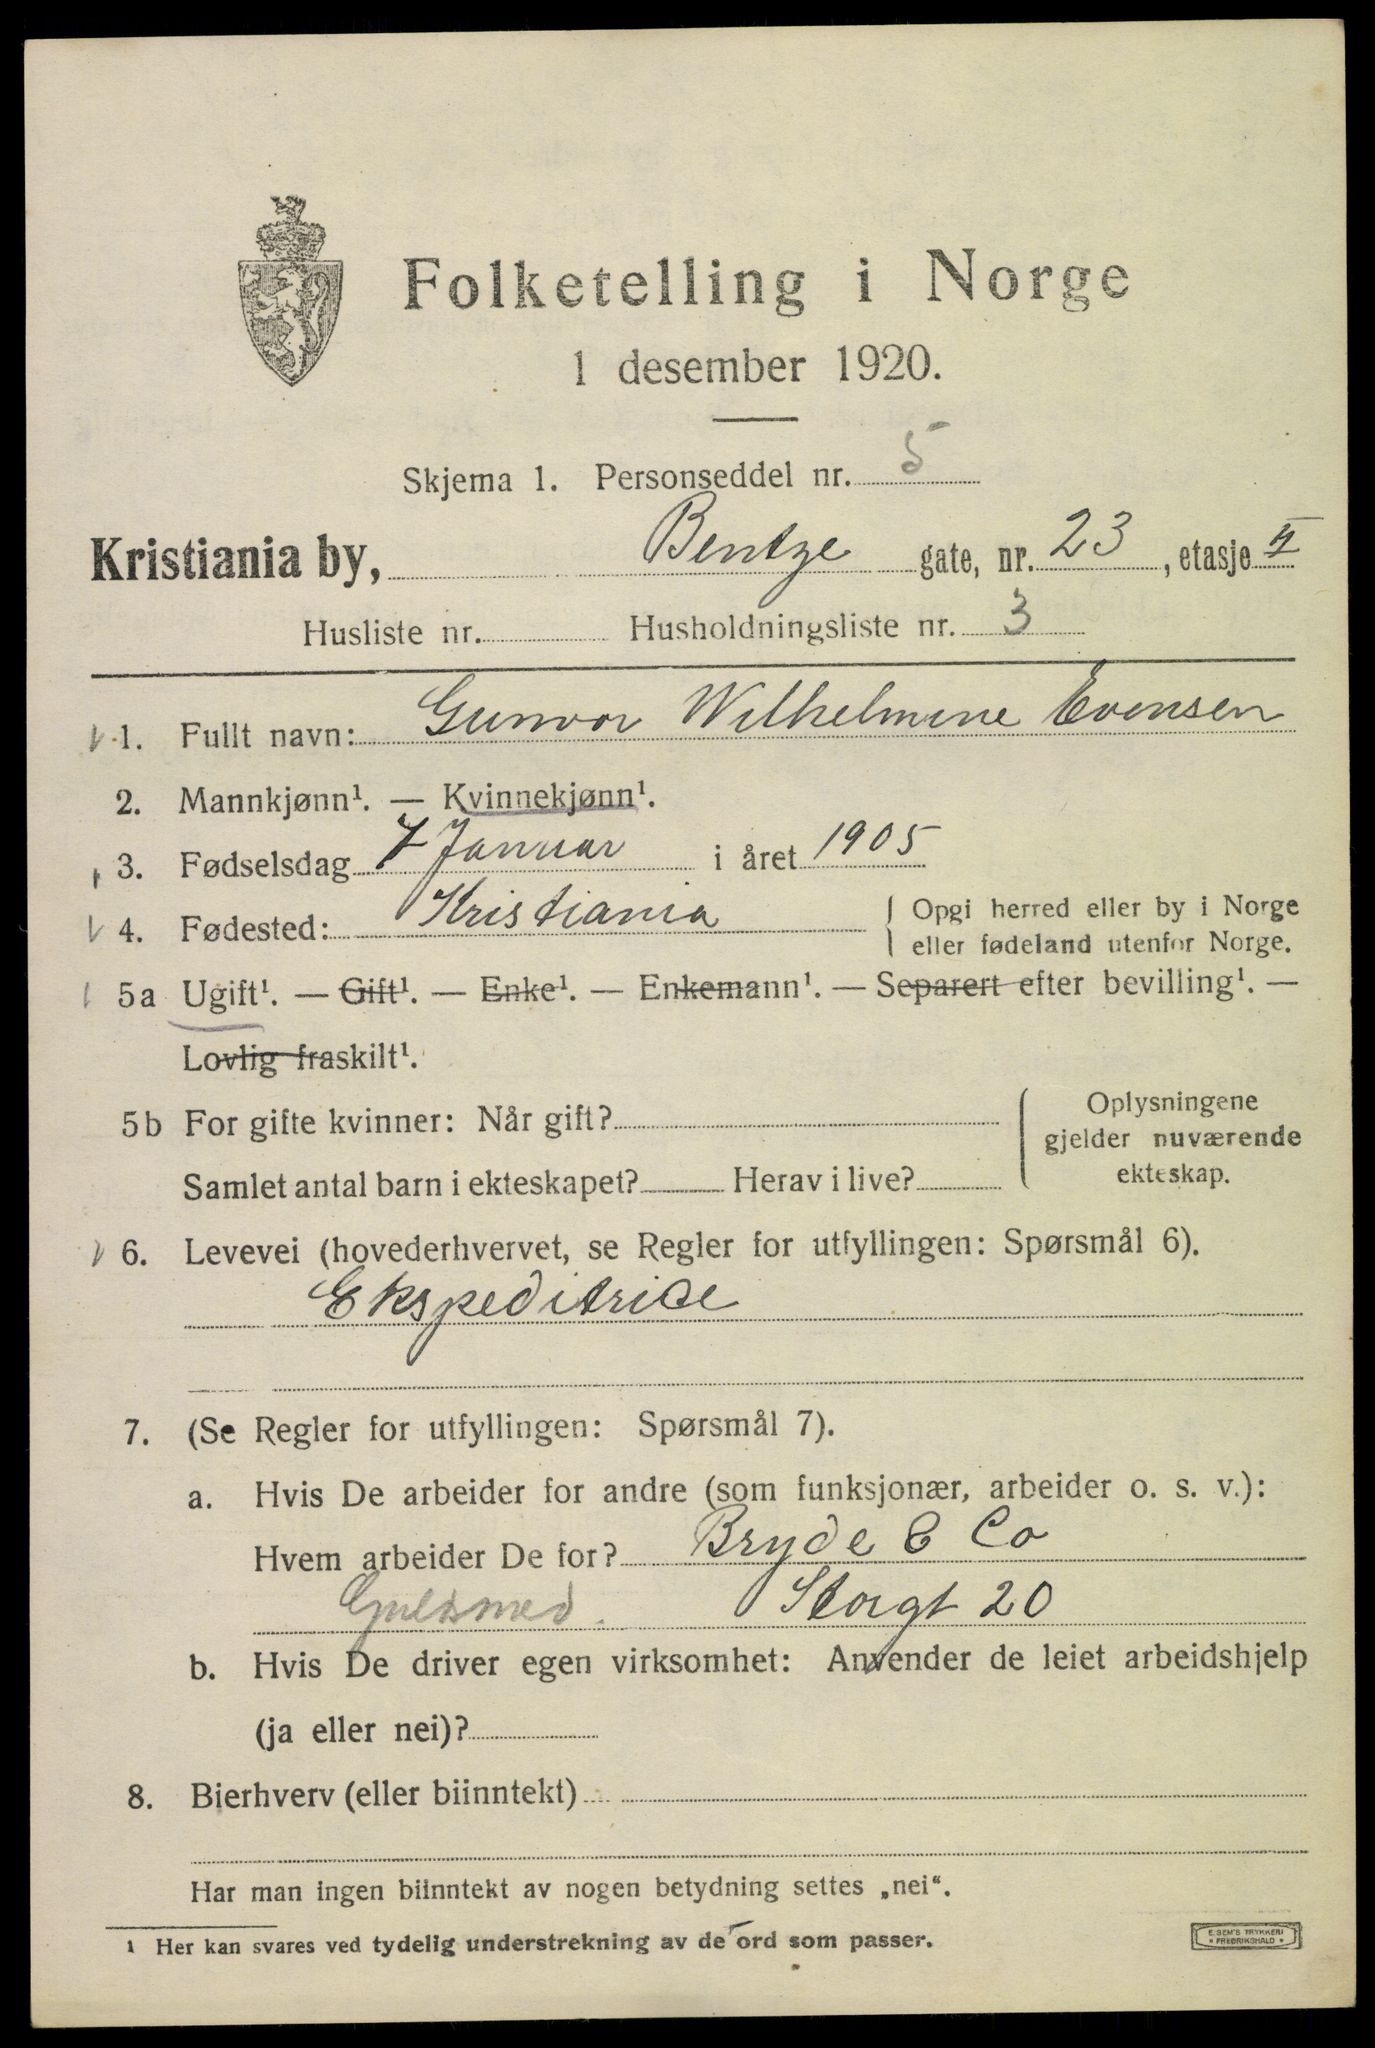 Folketelling i Norge
1 desember 1920.
Skjema 1. Personseddel nr. 5
Kristiania by, Bentze gate, nr. 23, etasje II
Husliste nr. Husholdningsliste nr. 3
1. Fullt navn: Gunvor Wilhelmine Evensen
2. Mannkjønn¹. — Kvinnekjønn¹.
3. Fødselsdag 7 Januar i året 1905
4. Fødested: Kristiania
Opgi herred eller by i Norge
eller fødeland utenfor Norge.
5a Ugift¹. — Gift¹. — Enke¹. — Enkemann¹. — Separert efter bevilling¹. —
Lovlig fraskilt¹.
5b For gifte kvinner: Når gift?
Samlet antal barn i ekteskapet? Herav i live?
Oplysningene
gjelder nuværende
ekteskap.
6. Levevei (hovederhvervet, se Regler for utfyllingen: Spørsmål 6).
Ekspeditrice
7. (Se Regler for utfyllingen: Spørsmål 7).
a. Hvis De arbeider for andre (som funksjonær, arbeider o. s. v.):
Hvem arbeider De for? Bryde & Co
Gulsmed. Storgt 20
b. Hvis De driver egen virksomhet: Anvender de leiet arbeidshjelp
(ja eller nei)?
8. Bierhverv (eller biinntekt)
Har man ingen biinntekt av nogen betydning settes „nei“.
¹ Her kan svares ved tydelig understrekning av de ord som passer.
E. SEM'S TRYKKERI
* FREDRIKSHALD *